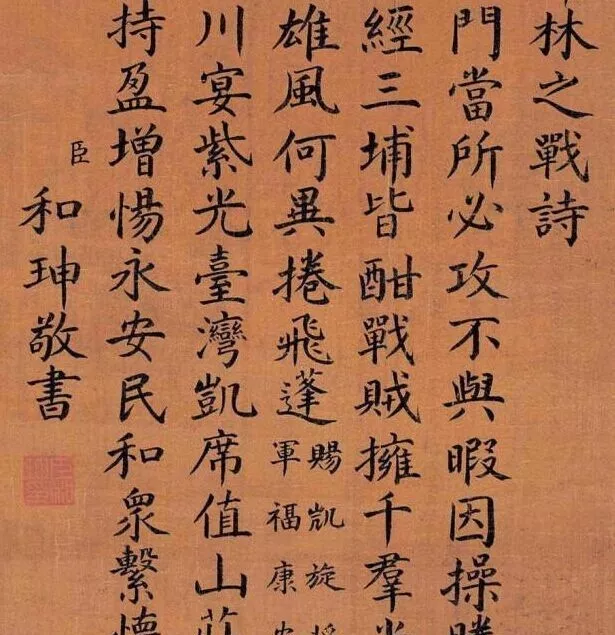 林之戰詩
門當所必攻不與暇因操
經三埔皆酣戰賊擁千羣
雄風何異捲飛蓬
賜凱旋
軍福康
川宴紫光臺灣凱席值山
持盈增惕永安民和眾繫懷
臣和珅敬書